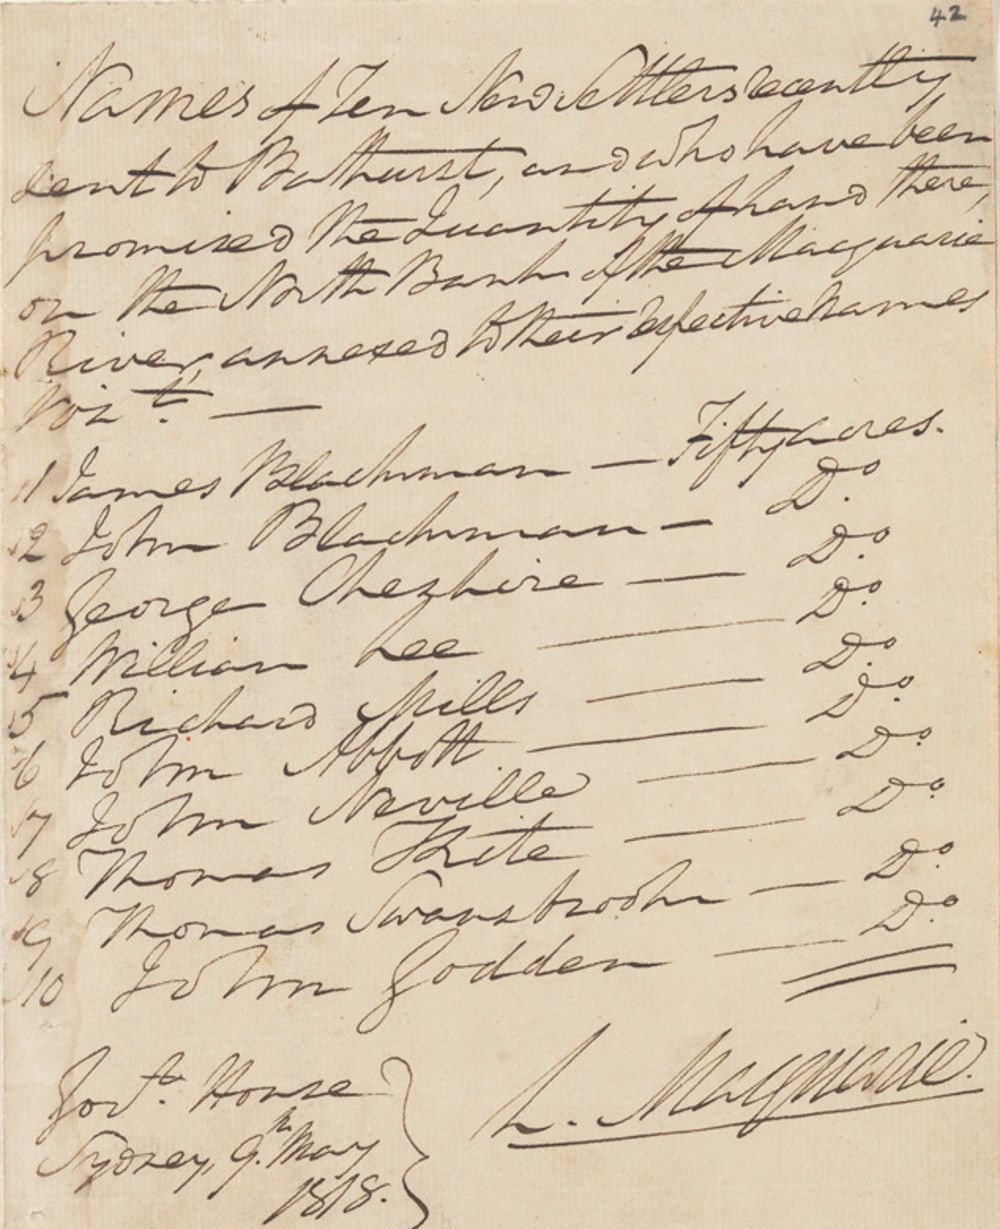 42
Names of Ten New Settlers recently
sent to Bathurst, and who have been
promised the Quantity of Land there,
on the North Bank of the Macquarie
River, annexed to their respective Names
Vizt. —
1 James Blackman — Fifty acres.
2 John Blackman — Do.
3 George Cheshire — Do.
4 William Lee — Do.
5 Richard Mills — Do.
6 John Abbott — Do.
7 John Neville — Do.
8 Thomas Kite — Do.
9 Thomas Swansbrooke — Do.
10 John Godden — Do.
L. Macquarie.
Govt. House
Sydney, 9th. May
1818.